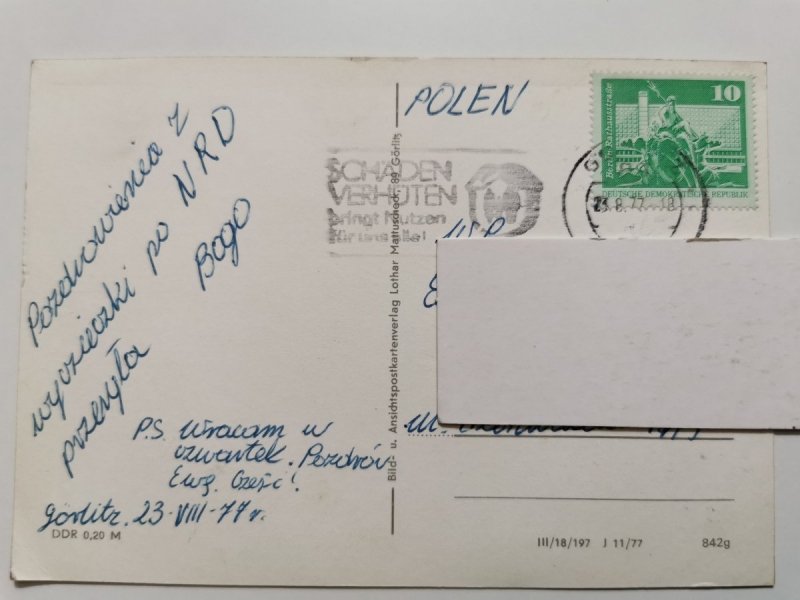 Pozdrowienia z
wycieczki po NRD
przesyła
Bogo
P.S. Wracam w
czwartek. Pozdrów
Ewę. Cześć!
Görlitz. 23-VIII-77r.
DDR 0,20 M
Bild- u. Ansichtspostkartenverlag Lothar Mattuscheck, 89 Görlitz
POLEN
SCHÄDEN
VERHÜTEN
bringt Nutzen
für uns alle!
10
Berlin, Rathausstraße
DEUTSCHE DEMOKRATISCHE REPUBLIK
23.8.77-18
III/18/197 J 11/77
842g